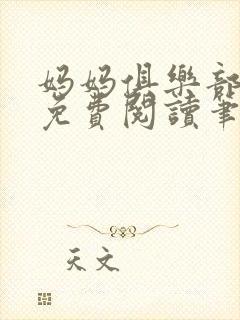 媽媽俱樂部
免費閱讀筆
天文